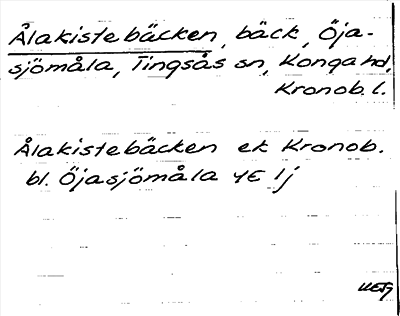 Ålakistebäcken, bäck, Öja-
sjömåla, Tingsås sn, Konga hd,
Kronob. l.
Ålakistebäcken ek Kronob.
bl. Öjasjömåla 4E 1j